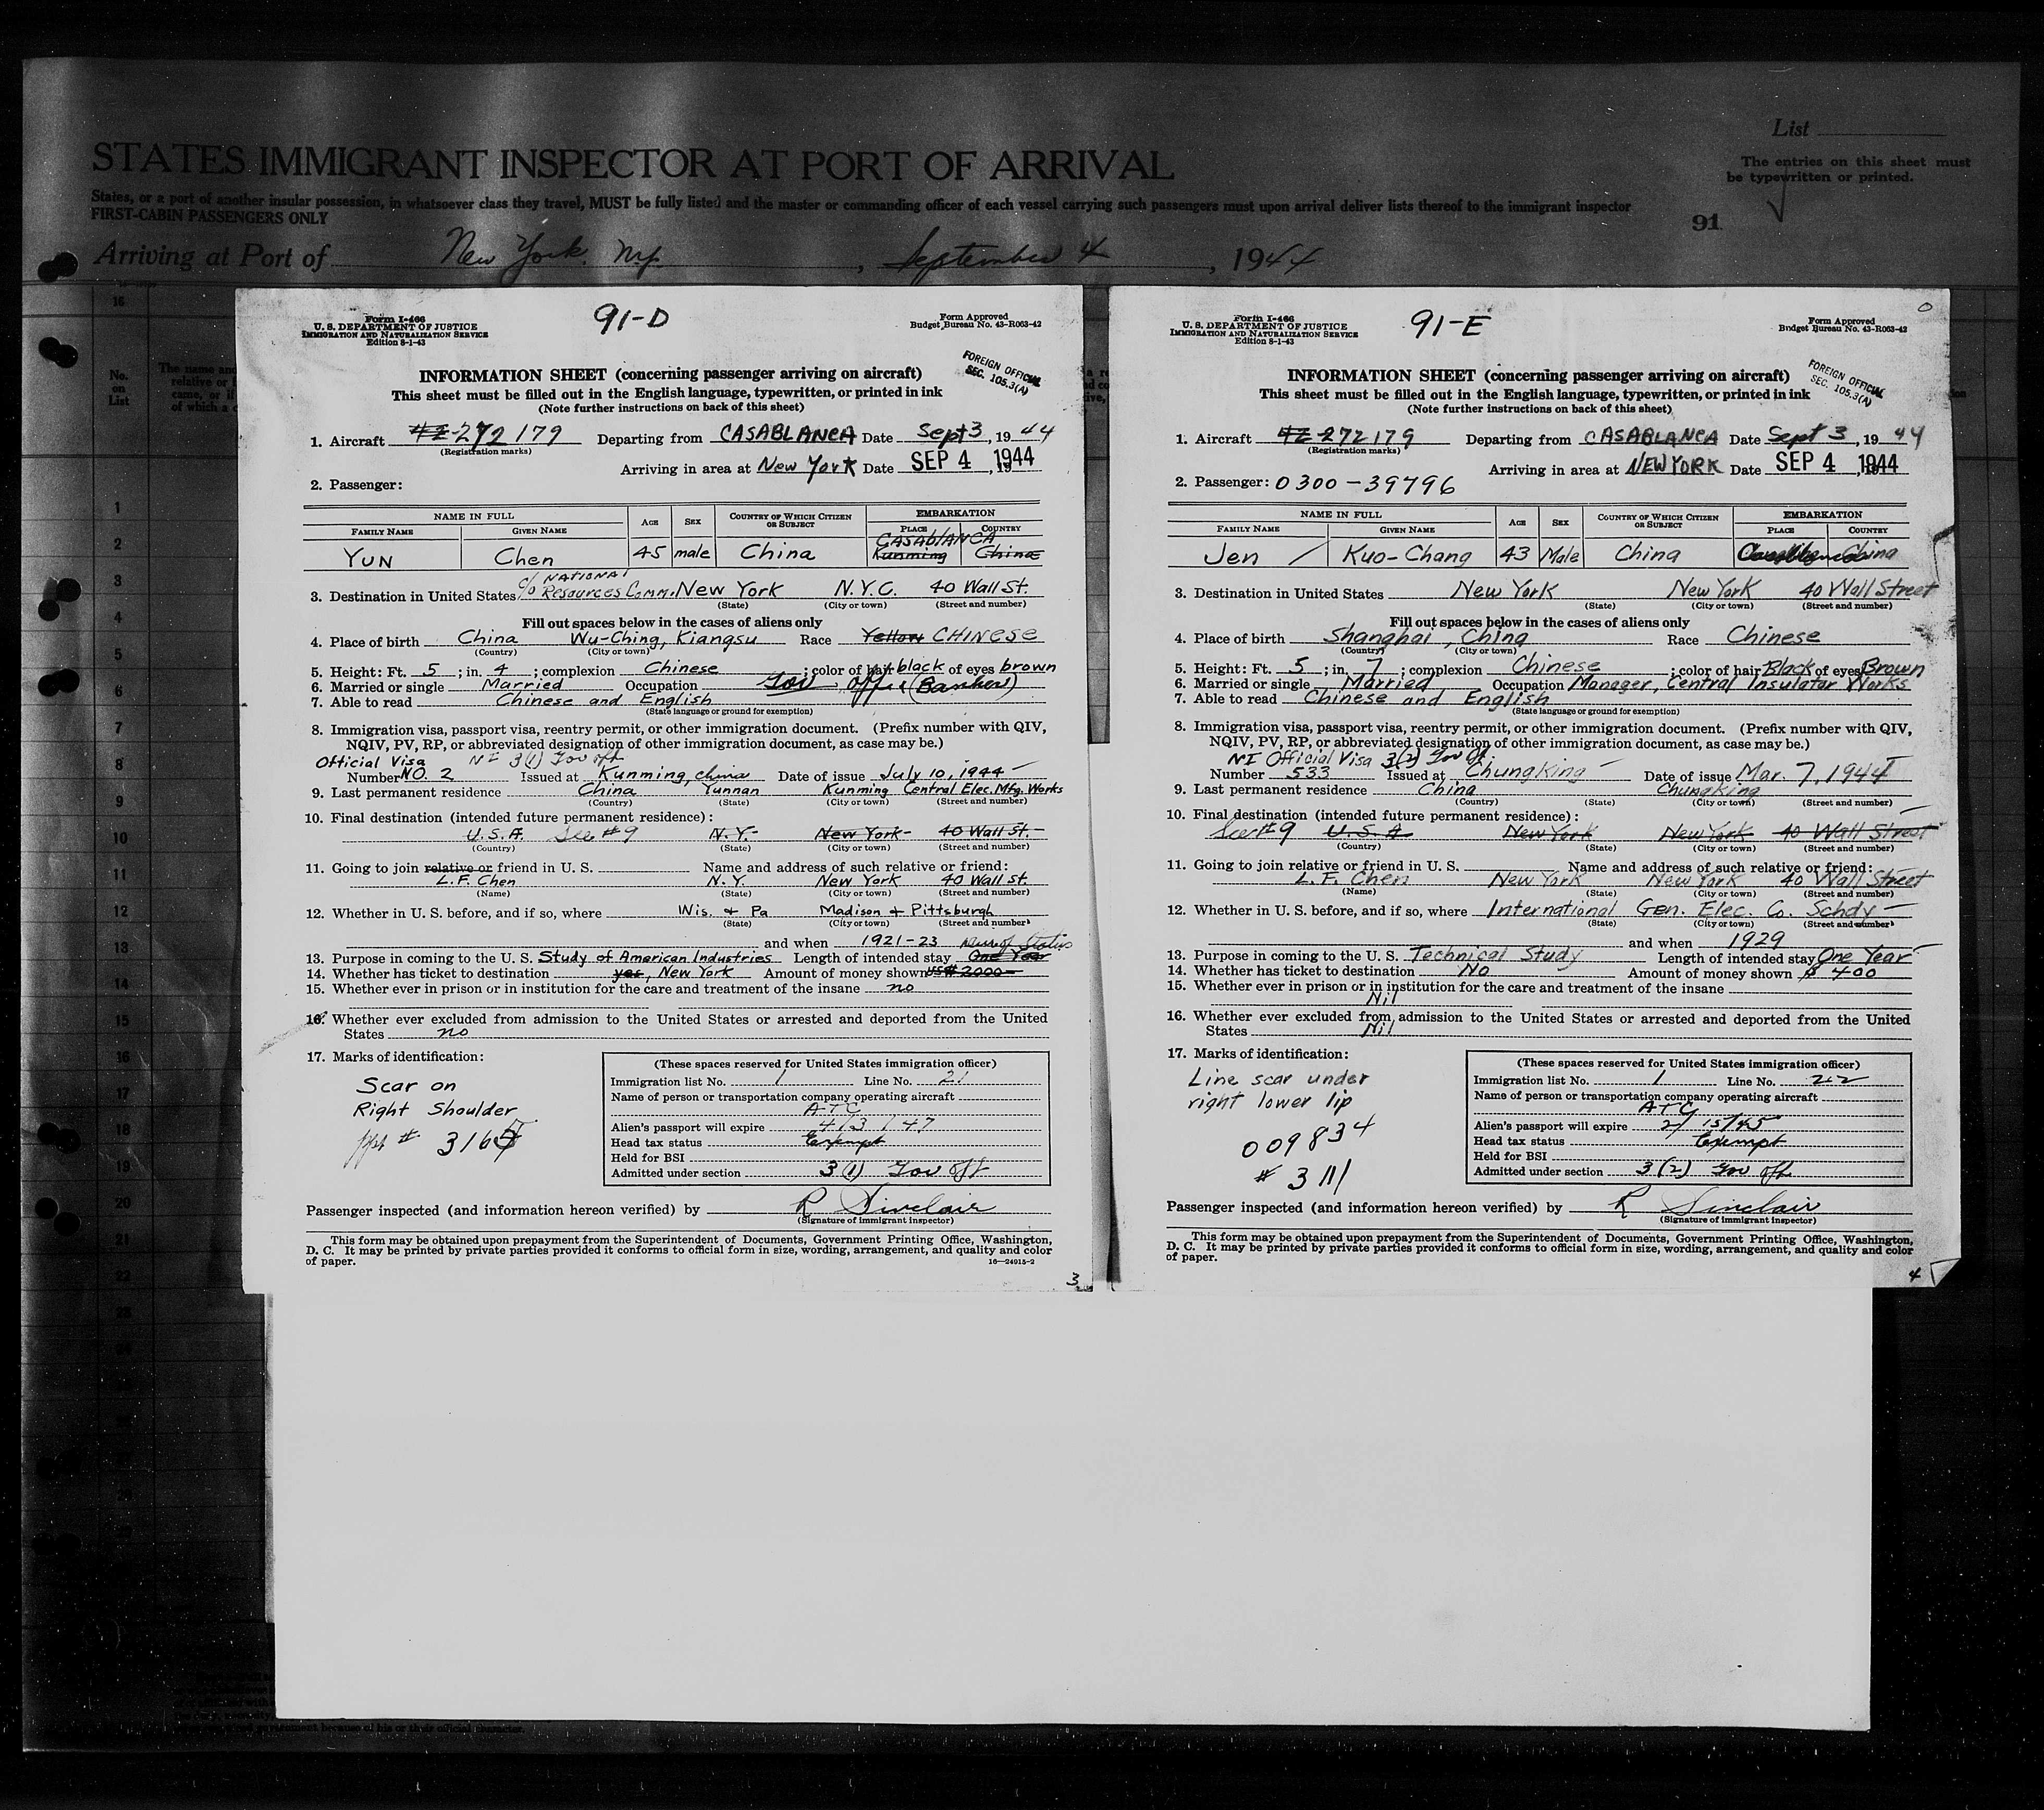 List
STATES IMMIGRANT INSPECTOR AT PORT OF ARRIVAL
The entries on this sheet must
be typewritten or printed.
States, or a port of another insular possession, in whatsoever class they travel, MUST be fully listed and the master or commanding officer of each vessel carrying such passengers must upon arrival deliver lists thereof to the immigrant inspector
FIRST-CABIN PASSENGERS ONLY
91
Arriving at Port of New York, N.Y. , September 4 , 1944
No.
on
List
91-D
Form I-466
U. S. DEPARTMENT OF JUSTICE
IMMIGRATION AND NATURALIZATION SERVICE
Edition 8-1-43
Form Approved
Budget Bureau No. 43-R063-42
FOREIGN OFFICIAL
SEC. 105.3(A)
INFORMATION SHEET (concerning passenger arriving on aircraft)
This sheet must be filled out in the English language, typewritten, or printed in ink
(Note further instructions on back of this sheet)
1. Aircraft 272179 Departing from CASABLANCA Date Sept 3, 1944
(Registration marks)
Arriving in area at New York Date SEP 4, 1944
2. Passenger:
NAME IN FULL AGE SEX COUNTRY OF WHICH CITIZEN OR SUBJECT EMBARKATION
FAMILY NAME GIVEN NAME PLACE COUNTRY
CASABLANCA
YUN Chen 45 male China Kunming China
c/o NATIONAL
3. Destination in United States Resources Comm. New York N.Y.C. 40 Wall St.
(State) (City or town) (Street and number)
Fill out spaces below in the cases of aliens only
4. Place of birth China Wu-Ching, Kiangsu Race Yellow CHINESE
(Country) (City or town)
5. Height: Ft. 5 ; in. 4 ; complexion Chinese ; color of hair black of eyes brown
6. Married or single Married Occupation Gov. Off. (Banker)
7. Able to read Chinese and English
(State language or ground for exemption)
8. Immigration visa, passport visa, reentry permit, or other immigration document. (Prefix number with QIV,
NQIV, PV, RP, or abbreviated designation of other immigration document, as case may be.)
Official Visa NI 3(1) Gov off
Number NO. 2 Issued at Kunming, China Date of issue July 10, 1944
9. Last permanent residence China Yunnan Kunming Central Elec. Mfg. Works
(Country) (State) (City or town) (Street and number)
10. Final destination (intended future permanent residence):
U.S.A. See #9 N.Y. New York 40 Wall St.
(Country) (State) (City or town) (Street and number)
11. Going to join relative or friend in U. S. Name and address of such relative or friend:
L.F. Chen N.Y. New York 40 Wall St.
(Name) (State) (City or town) (Street and number)
12. Whether in U. S. before, and if so, where Wis. + Pa Madison + Pittsburgh
(State) (City or town) (Street and number)
and when 1921-23 Dur of Status
13. Purpose in coming to the U. S. Study of American Industries Length of intended stay One Year
14. Whether has ticket to destination yes, New York Amount of money shown US$ 2000-
15. Whether ever in prison or in institution for the care and treatment of the insane no
16. Whether ever excluded from admission to the United States or arrested and deported from the United
States no
17. Marks of identification:
Scar on
Right Shoulder
ppt # 3165
(These spaces reserved for United States immigration officer)
Immigration list No. 1 Line No. 21
Name of person or transportation company operating aircraft
ATC
Alien's passport will expire 4/3/47
Head tax status Exempt
Held for BSI
Admitted under section 3(1) Gov off
Passenger inspected (and information hereon verified) by R Sinclair
(Signature of immigrant inspector)
This form may be obtained upon prepayment from the Superintendent of Documents, Government Printing Office, Washington,
D. C. It may be printed by private parties provided it conforms to official form in size, wording, arrangement, and quality and color
of paper.
16—24915-2
3
91-E
Form I-466
U. S. DEPARTMENT OF JUSTICE
IMMIGRATION AND NATURALIZATION SERVICE
Edition 8-1-43
Form Approved
Budget Bureau No. 43-R063-42
FOREIGN OFFICIAL
SEC. 105.3(A)
INFORMATION SHEET (concerning passenger arriving on aircraft)
This sheet must be filled out in the English language, typewritten, or printed in ink
(Note further instructions on back of this sheet)
1. Aircraft 272179 Departing from CASABLANCA Date Sept 3, 1944
(Registration marks)
Arriving in area at NEW YORK Date SEP 4, 1944
2. Passenger: 0300-39796
NAME IN FULL AGE SEX COUNTRY OF WHICH CITIZEN OR SUBJECT EMBARKATION
FAMILY NAME GIVEN NAME PLACE COUNTRY
Jen / Kuo-Chang 43 Male China China
3. Destination in United States New York New York 40 Wall Street
(State) (City or town) (Street and number)
Fill out spaces below in the cases of aliens only
4. Place of birth Shanghai, China Race Chinese
(Country) (City or town)
5. Height: Ft. 5 ; in. 7 ; complexion Chinese ; color of hair Black of eyes Brown
6. Married or single Married Occupation Manager, Central Insulator Works
7. Able to read Chinese and English
(State language or ground for exemption)
8. Immigration visa, passport visa, reentry permit, or other immigration document. (Prefix number with QIV,
NQIV, PV, RP, or abbreviated designation of other immigration document, as case may be.)
NI Official Visa 3(2) Gov Of.
Number 533 Issued at Chungking Date of issue Mar. 7, 1944
9. Last permanent residence China Chungking
(Country) (State) (City or town) (Street and number)
10. Final destination (intended future permanent residence):
See #9 U.S.A New York New York 40 Wall Street
(Country) (State) (City or town) (Street and number)
11. Going to join relative or friend in U. S. Name and address of such relative or friend:
L.F. Chen New York New York 40 Wall Street
(Name) (State) (City or town) (Street and number)
12. Whether in U. S. before, and if so, where International Gen. Elec. Co. Schdy
(State) (City or town) (Street and number)
and when 1929
13. Purpose in coming to the U. S. Technical Study Length of intended stay One Year
14. Whether has ticket to destination No Amount of money shown $ 400
15. Whether ever in prison or in institution for the care and treatment of the insane
Nil
16. Whether ever excluded from admission to the United States or arrested and deported from the United
States Nil
17. Marks of identification:
Line scar under
right lower lip
009834
# 3111
(These spaces reserved for United States immigration officer)
Immigration list No. 1 Line No. 22
Name of person or transportation company operating aircraft
ATC
Alien's passport will expire 2/15/45
Head tax status Exempt
Held for BSI
Admitted under section 3(2) Gov off
Passenger inspected (and information hereon verified) by R Sinclair
(Signature of immigrant inspector)
This form may be obtained upon prepayment from the Superintendent of Documents, Government Printing Office, Washington,
D. C. It may be printed by private parties provided it conforms to official form in size, wording, arrangement, and quality and color
of paper.
4